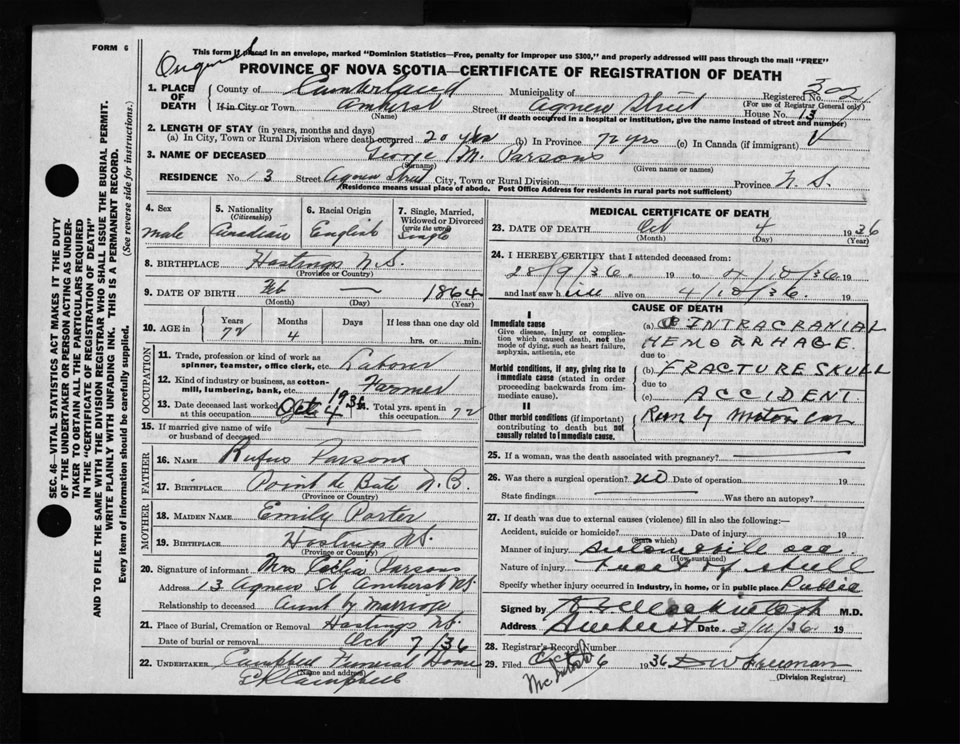 FORM 6
This form if placed in an envelope, marked "Dominion Statistics—Free, penalty for improper use $300," and properly addressed will pass through the mail "FREE"
PROVINCE OF NOVA SCOTIA—CERTIFICATE OF REGISTRATION OF DEATH
1. PLACE OF DEATH County of Cumberland Municipality of Registered No. 302
(For use of Registrar General only)
If in City or Town Amherst Street Agnew Street House No. 13
(Name) (If death occurred in a hospital or institution, give the name instead of street and number)
2. LENGTH OF STAY (in years, months and days)
(a) In City, Town or Rural Division where death occurred 20 yrs (b) In Province 72 yrs (c) In Canada (if immigrant)
3. NAME OF DECEASED George M. Parsons
(Surname) (Given name or names)
RESIDENCE No. 13 Street Agnew Street City, Town or Rural Division Province N. S.
(Residence means usual place of abode. Post Office Address for residents in rural parts not sufficient)
4. Sex male
5. Nationality (Citizenship) Canadian
6. Racial Origin English
7. Single, Married, Widowed or Divorced (write the word) Single
8. BIRTHPLACE Hastings N.S.
(Province or Country)
9. DATE OF BIRTH Feb — 1864
(Month) (Day) (Year)
10. AGE in Years 72 Months 4 Days If less than one day old
hrs. or min.
OCCUPATION
11. Trade, profession or kind of work as spinner, teamster, office clerk, etc. Labour
12. Kind of industry or business, as cotton-mill, lumbering, bank, etc. Farmer
13. Date deceased last worked at this occupation 1936 Total yrs. spent in this occupation 72
15. If married give name of wife or husband of deceased
FATHER
16. Name Rufus Parsons
17. Birthplace Point de Bute N.B.
(Province or Country)
MOTHER
18. Maiden Name Emily Porter
19. Birthplace Hastings NS.
(Province or Country)
20. Signature of informant Mrs Parsons
Address 13 Agnew St Amherst NS
Relationship to deceased Aunt by marriage
21. Place of Burial, Cremation or Removal Hastings NS.
Date of burial or removal Oct 7/36
22. UNDERTAKER Campbell Funeral Home
(Name and address)
Campbell
MEDICAL CERTIFICATE OF DEATH
23. DATE OF DEATH Oct 4 1936
(Month) (Day) (Year)
24. I HEREBY CERTIFY that I attended deceased from:
28/9/36 19 to 4/10/36 19
and last saw him alive on 4/10/36 19
CAUSE OF DEATH
I
Immediate cause
Give disease, injury or complication which caused death, not the mode of dying, such as heart failure, asphyxia, asthenia, etc
(a) INTRACRANIAL
HEMORRHAGE
due to
Morbid conditions, if any, giving rise to immediate cause (stated in order proceeding backwards from immediate cause).
(b) FRACTURE SKULL
due to
(c) ACCIDENT
II
Other morbid conditions (if important) contributing to death but not causally related to immediate cause.
Run by Motor car
25. If a woman, was the death associated with pregnancy?
26. Was there a surgical operation? no Date of operation 19
State findings Was there an autopsy?
27. If death was due to external causes (violence) fill in also the following:—
Accident, suicide or homicide? Date of injury 19
(State which)
Manner of injury Automobile acc.
(How sustained)
Nature of injury skull
Specify whether injury occurred in industry, in home, or in public place Public
Signed by M.D.
Address Amherst Date 3/11/36 19
28. Registrar's Record Number
29. Filed Oct 6 1936 Freeman
(Division Registrar)
SEC. 46—VITAL STATISTICS ACT MAKES IT THE DUTY
OF THE UNDERTAKER OR PERSON ACTING AS UNDER-
TAKER TO OBTAIN ALL THE PARTICULARS REQUIRED
IN THE "CERTIFICATE OF REGISTRATION OF DEATH"
AND TO FILE THE SAME WITH THE DIVISION REGISTRAR WHO SHALL ISSUE THE BURIAL PERMIT.
WRITE PLAINLY WITH UNFADING INK. THIS IS A PERMANENT RECORD.
Every item of information should be carefully supplied. (See reverse side for instructions.)